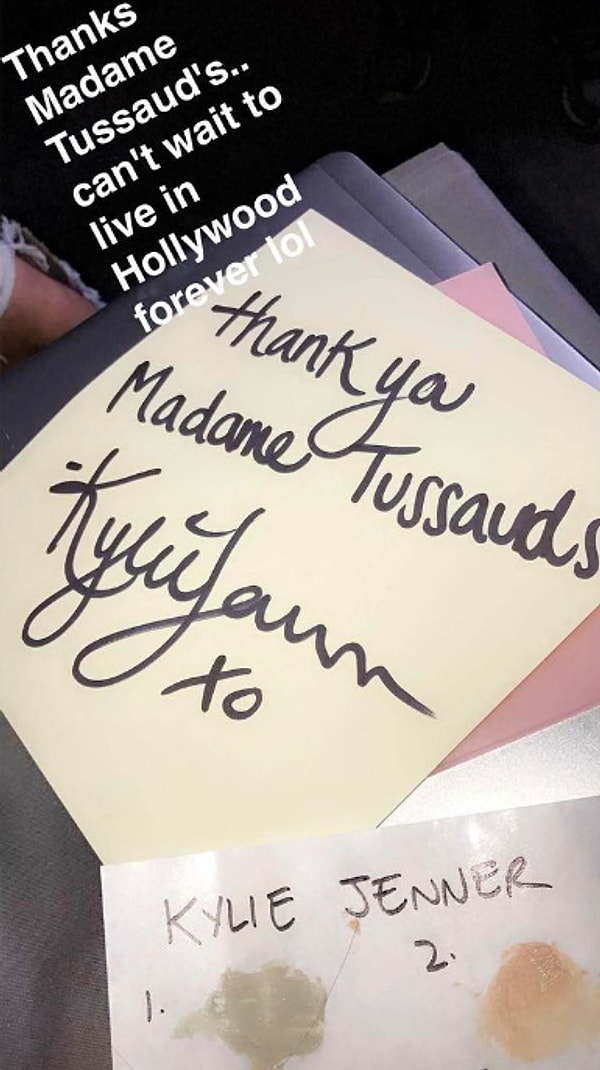 Thanks
Madame
Tussaud's..
can't wait to
live in
Hollywood
forever lol
thank you
Madame Tussauds
Kylie Jenner
xo
KYLIE JENNER
1.
2.